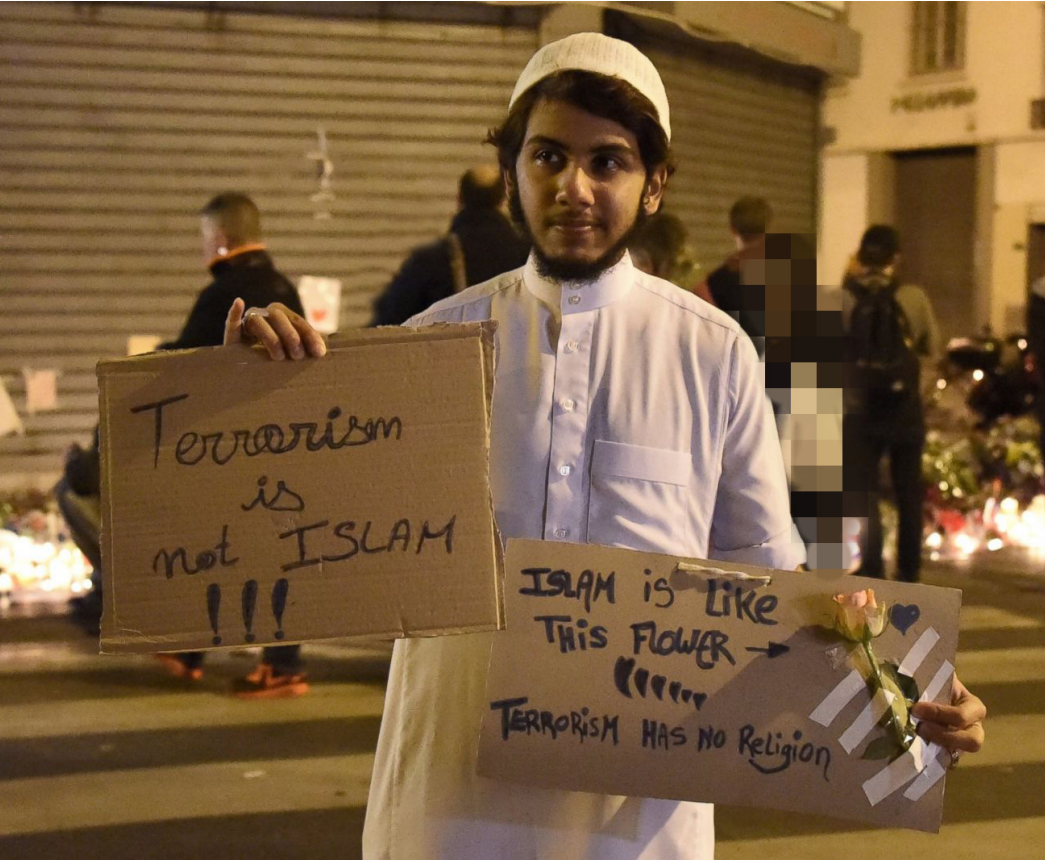 Terrorism
is
not ISLAM
!!!
ISLAM is Like
THiS FLOWER →
TERRORiSM HAS NO Religion